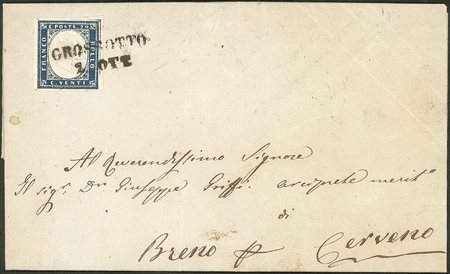 C. POSTE 20
FRANCO
BOLLO
C. VENTI
GROSSOTTO
2 OTT
Al Reverendissimo Signore
Il sig.r Dn Giuseppe Griffi. arciprete merit.o
di
Breno Cerveno